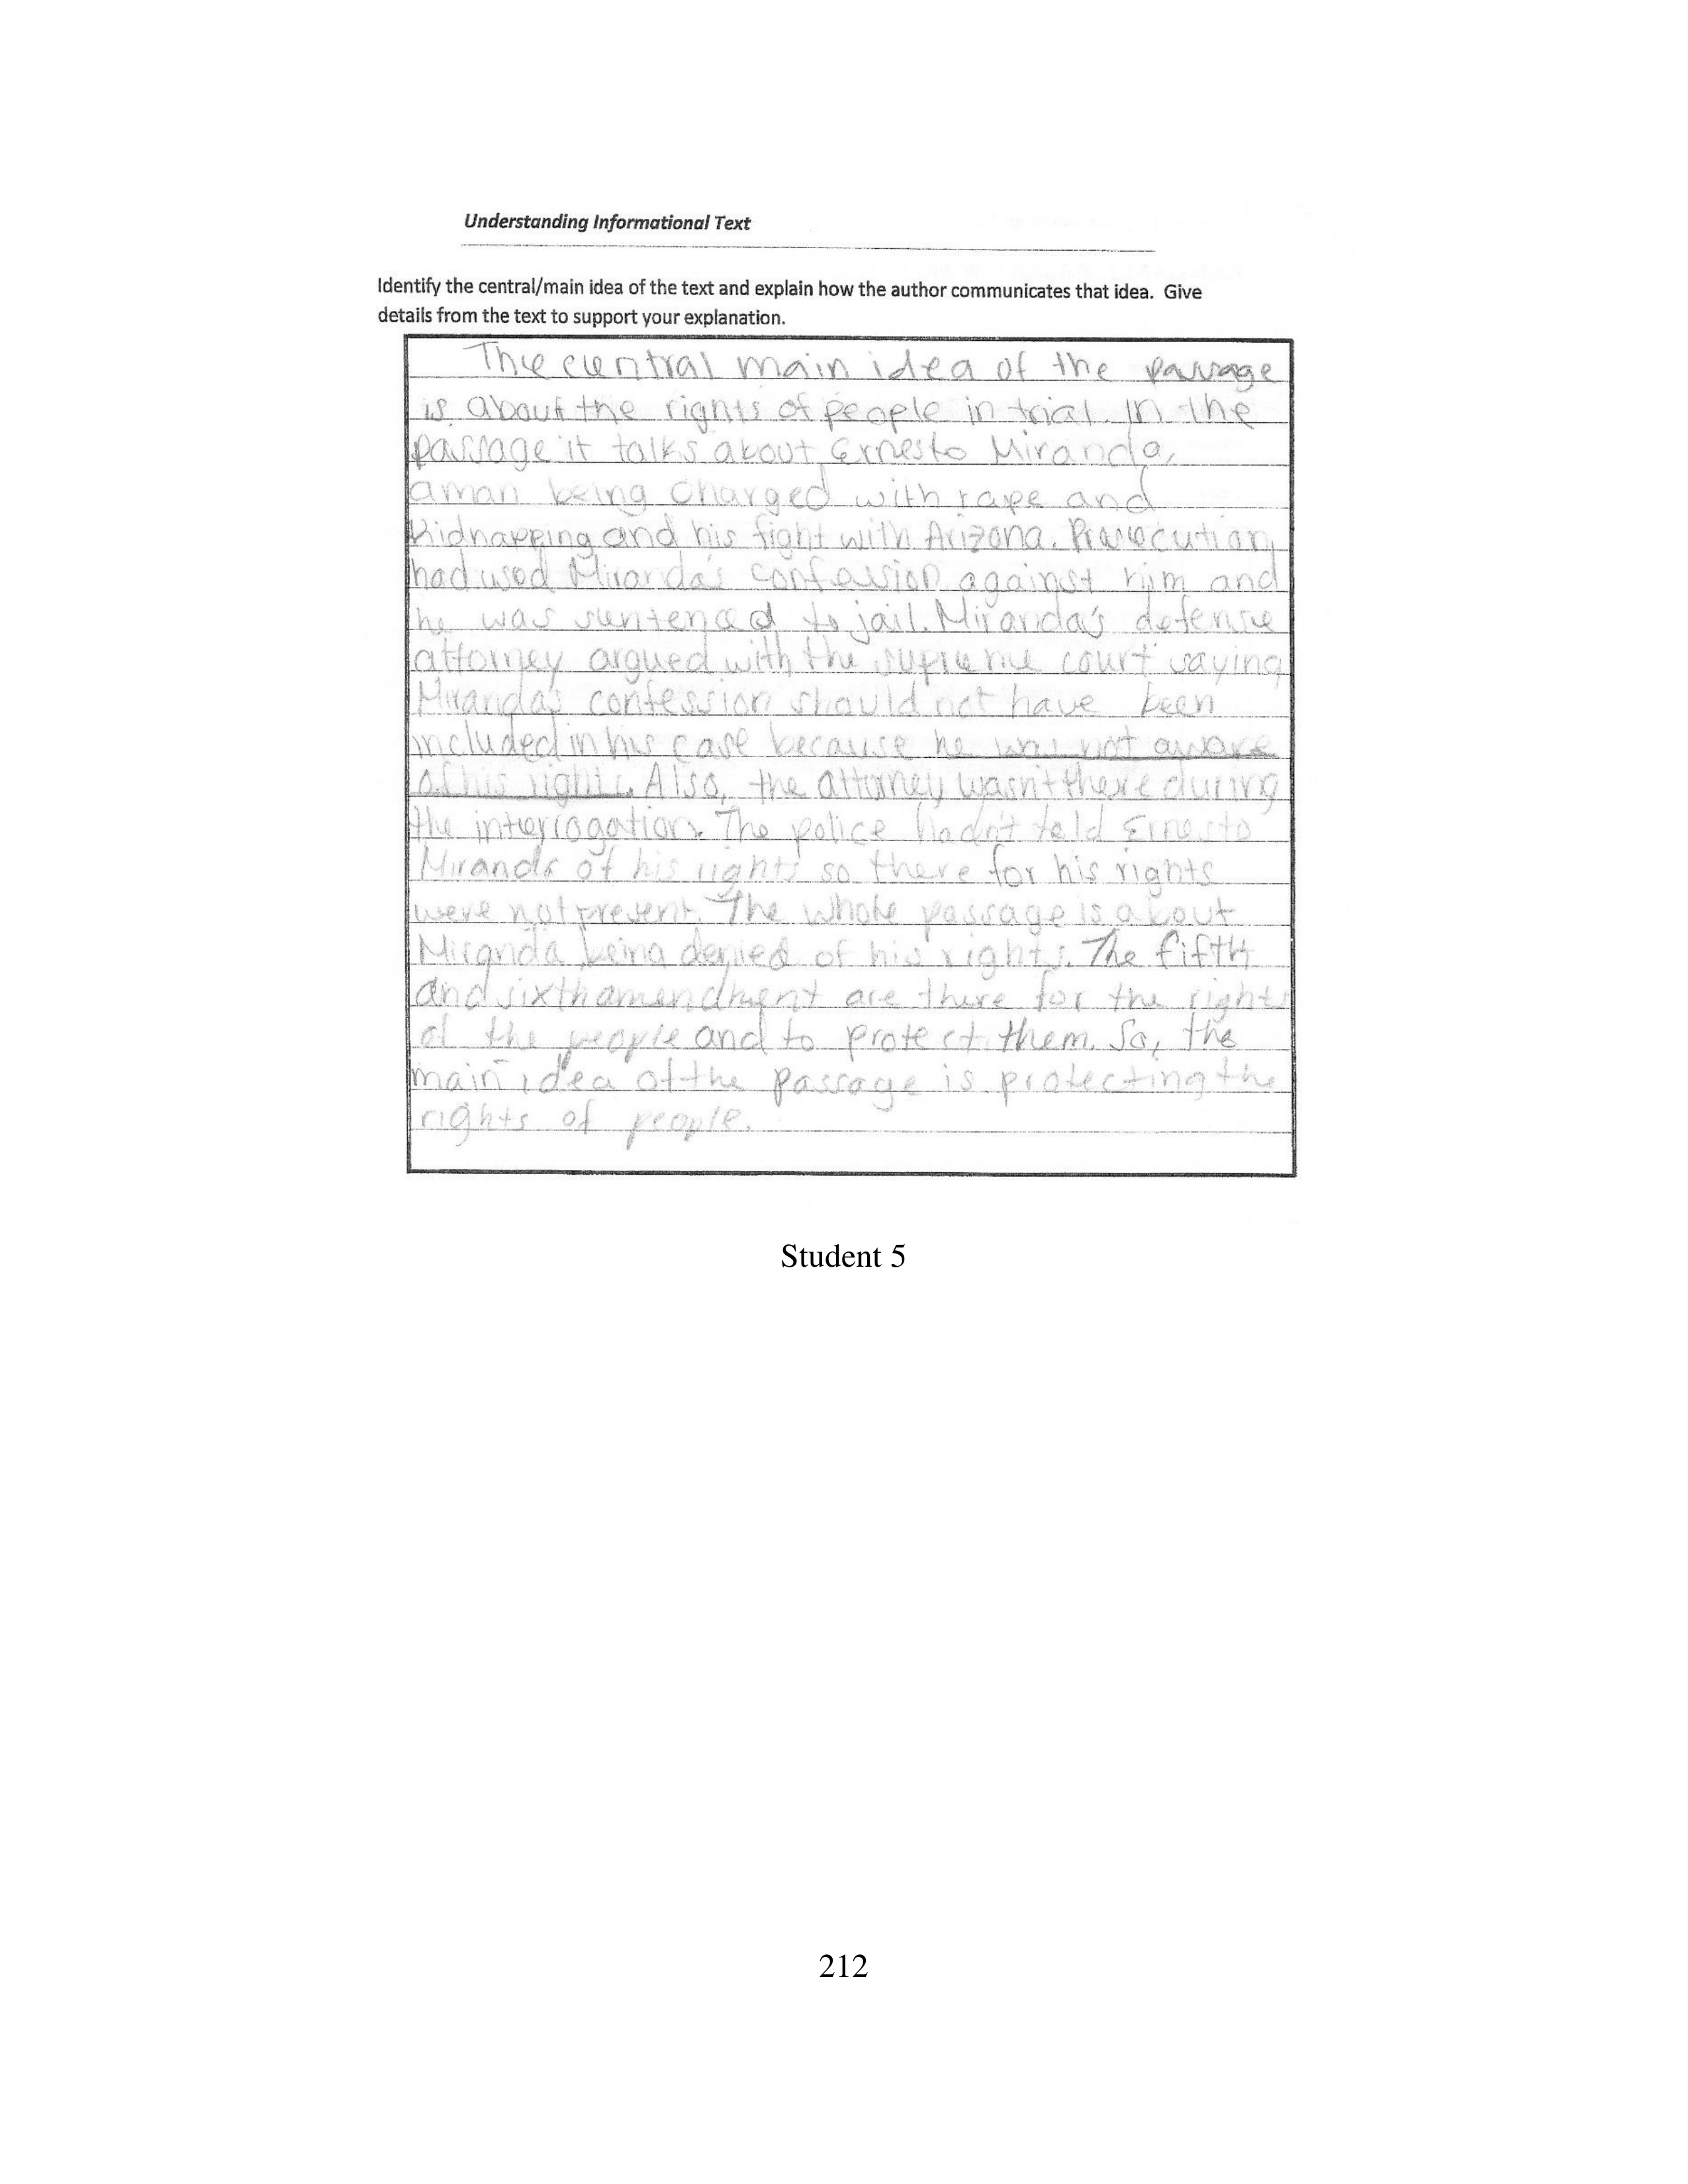 Understanding Informational Text
Identify the central/main idea of the text and explain how the author communicates that idea. Give
details from the text to support your explanation.
The central main idea of the passage
is about the rights of people in trial. In the
passage it talks about Ernesto Miranda,
a man being charged with rape and
Kidnapping and his fight with Arizona. Prosecution
had used Miranda's confession against him and
he was sentenced to jail. Miranda's defense
attorney argued with the supreme court saying
Miranda's confession should not have been
included in his case because he was not aware
of his rights. Also, the attorney wasn't there during
the interrogation. The police hadn't told Ernesto
Miranda of his rights so there for his rights
were not present. The whole passage is about
Miranda being denied of his rights. The fifth
and sixth amendment are there for the rights
of the people and to protect them. So, the
main idea of the passage is protecting the
rights of people.
Student 5
212